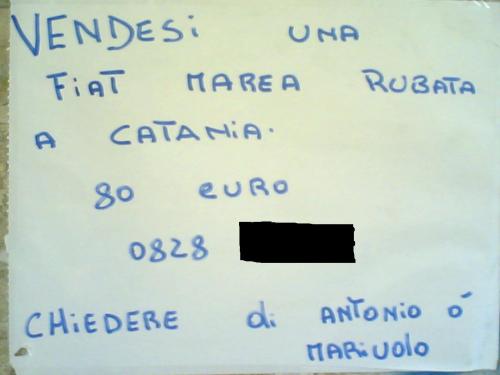 VENDESi UNA
FiAT MAREA RUBATA
A CATANiA.
80 EURO
0828
CHiEDERE di ANTONiO Ó
MARiUOLO